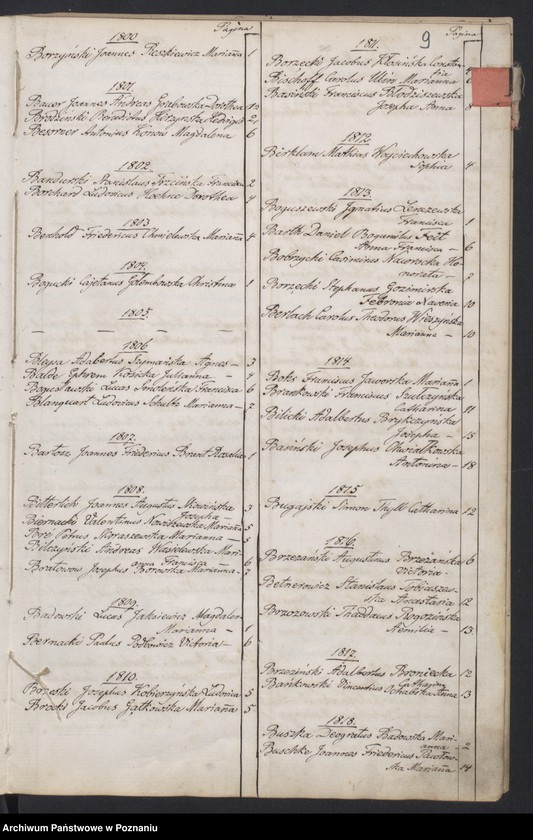 Pagina
1800.
Borzyński Joannes Reszkiewicz Marianna 1
1801.
Bauer Joannes Andreas Grabowska Dorothea 12
Brodzinski Benedictus Hedvigis 2
Besorner Antonius Magdalena 6
1802.
Bandurski Stanislaus Trzcińska Francisca 2
Borchard Ludovicus Hoehne Dorothea 4
1803
Berchold Fridericus Chmielewska Marianna 4
1804.
Bogucki Cajetanus Gołembowska Christina 1
1805.
1806.
Bleysa Adalbertus Szymańska Agnes 3
Balde Ephrem Kosicka Julianna 4
Bogusławski Lucas Francisca 6
Blangquart Ludovicus Schultz Marianna 7
1807.
Bartsz Joannes Fridericus Brunt Rosalia 1
1808.
Bitterlich Joannes Augustus Słowińska
Josepha 3
Biernacki Valentinus Nowiszewska Marianna 5
Bre Petrus Morzszewska Marianna 5
Bilczyński Andreas Wasielewska Mari-
anna Francisca 6
Bratowons Josephus Borowska Marianna 7
1809.
Badowski Lucas Jakiewicz Magdalen
Marianna 1
Bernacki Paulus Victoria 6
1810.
Brzeski Josephus Kobierzyńska Ludovica 5
Broeks Jacobus Jątkowska Marianna 5
9
Pagina
1811.
Borzęcki Jacobus Kłosińska Constan-
tia 4
Bischoff Carolus Ulein Marianna 6
Basiński Franciscus Włodziszewska
Josepha Anna 8
1812
Birklam Mathias Wojciechowska
Sophia 4
1813.
Boguszewski Ignatius Lenczewska
Francisca 1
Barth Daniel Bogumilus Feit
Anna Francisca 6
Bobrzycki Casimirus Nawrocka Ho-
norata 7
Borzęcki Stephanus Gozimirska
Febronia Xaveria 10
Berlach Carolus Theodorus Wieszyńska
Marianna 10
1814.
Boks Franciscus Jaworska Marianna 1
Brankowski Franciscus Szulczynska
Catharina 11
Bilicki Adalbertus Brykczyńska
Josepha 15
Basiński Josephus Chwiałkowska
Antonina 18
1815
Bugajski Simon Thyll Catharina 12
1816.
Brzeżański Augustinus Brzeżańska
Victoria 6
Betnerowicz Stanislaus Tobiasze-
ska Anastasia 12
Brzozowski Thaddaeus Rogozińska
Aemilia 13
1817.
Brzeziński Adalbertus Broniecka
Catharina 12
Bankowski Vincentius Anna 13
1818.
Buszka Deogratus Badowska Mari-
anna 2
Buschke Joannes Fridericus Pawłow-
ska Marianna 14
Archiwum Państwowe w Poznaniu